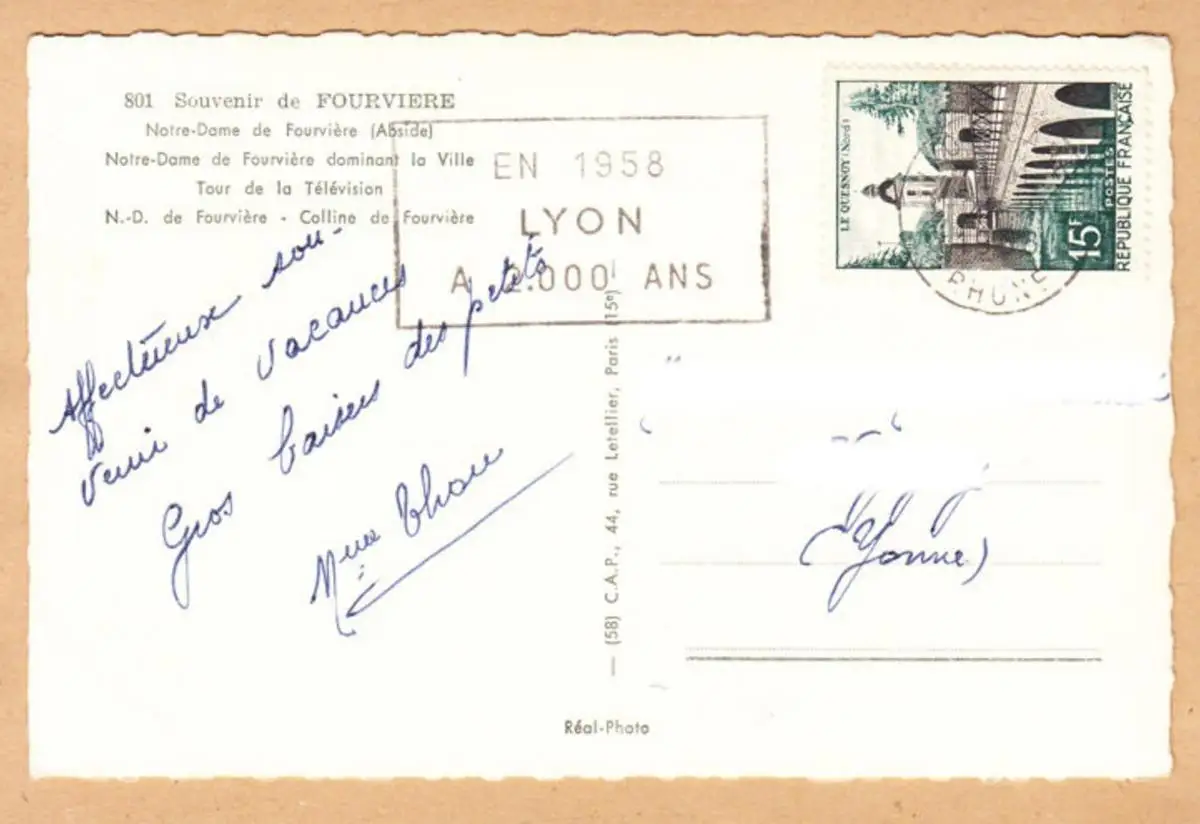 801 Souvenir de FOURVIERE
Notre-Dame de Fourvière (Abside)
Notre-Dame de Fourvière dominant la Ville
Tour de la Télévision
N.-D. de Fourvière - Colline de Fourvière
EN 1958
LYON
A 2.000 ANS
LE QUESNOY (Nord)
15F
POSTES
REPUBLIQUE FRANÇAISE
RHONE
Affectueux sou-
venir de vacances
Gros baisers des petits
Mme
(58) C.A.P., 44, rue Letellier, Paris (15e)
(Yonne)
Réal-Photo